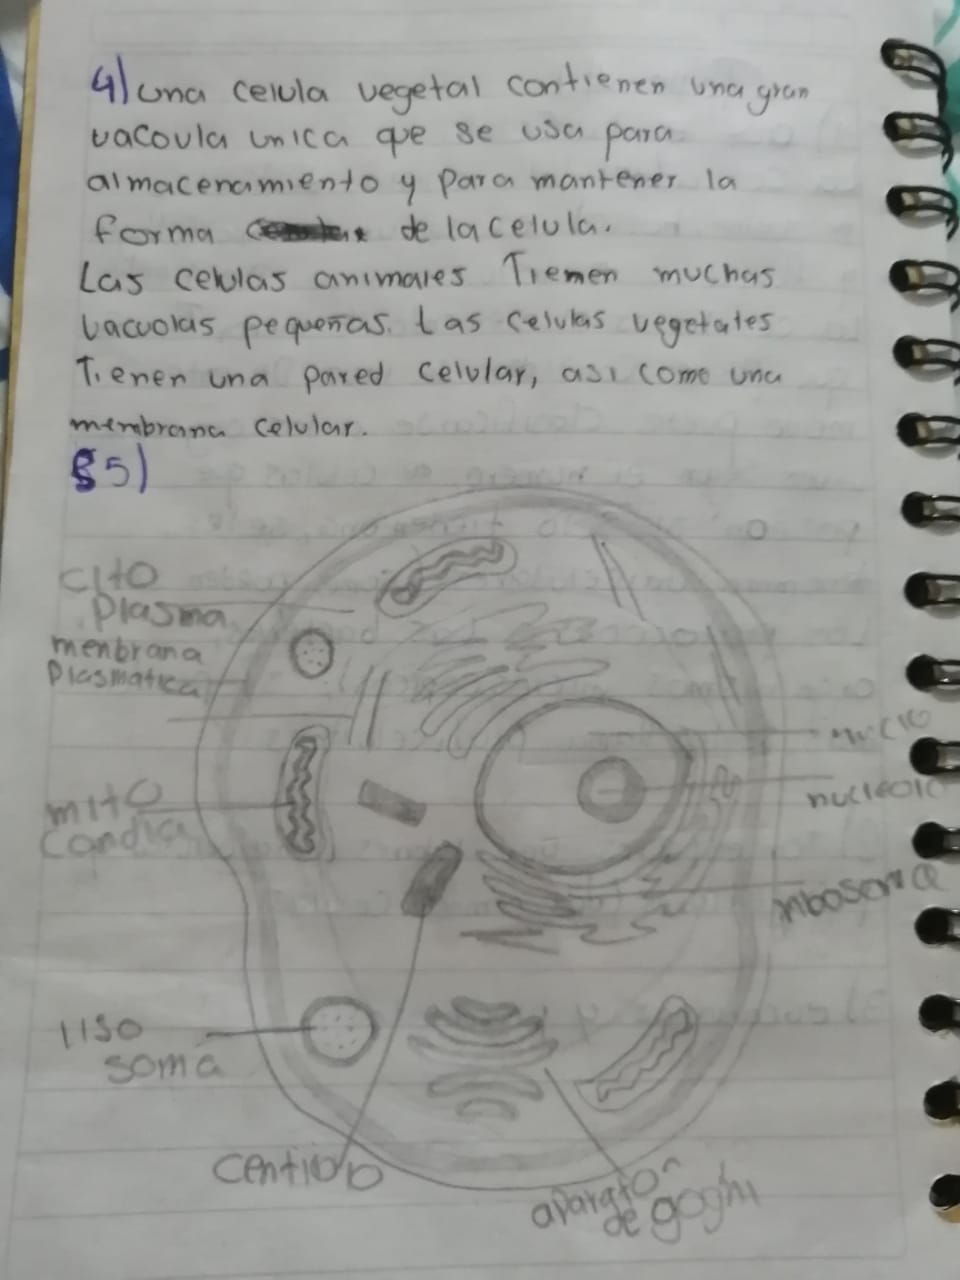 4) una celula vegetal contienen una gran
vacoula unica que se usa para
almacenamiento y para mantener la
forma de la celula.
Las celulas animales Tienen muchas
vacuolas pequeñas. Las celulas vegetales
Tienen una pared celular, asi como una
membrana celular.
5)
cito
plasma
menbrana
plasmatica
nucleolo
mito
condria
ribosoma
liso
soma
centriolo
aparato
de goghi